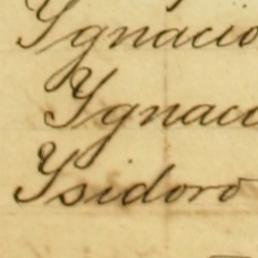 Ygnacio
Ygnaci
Ysidoro